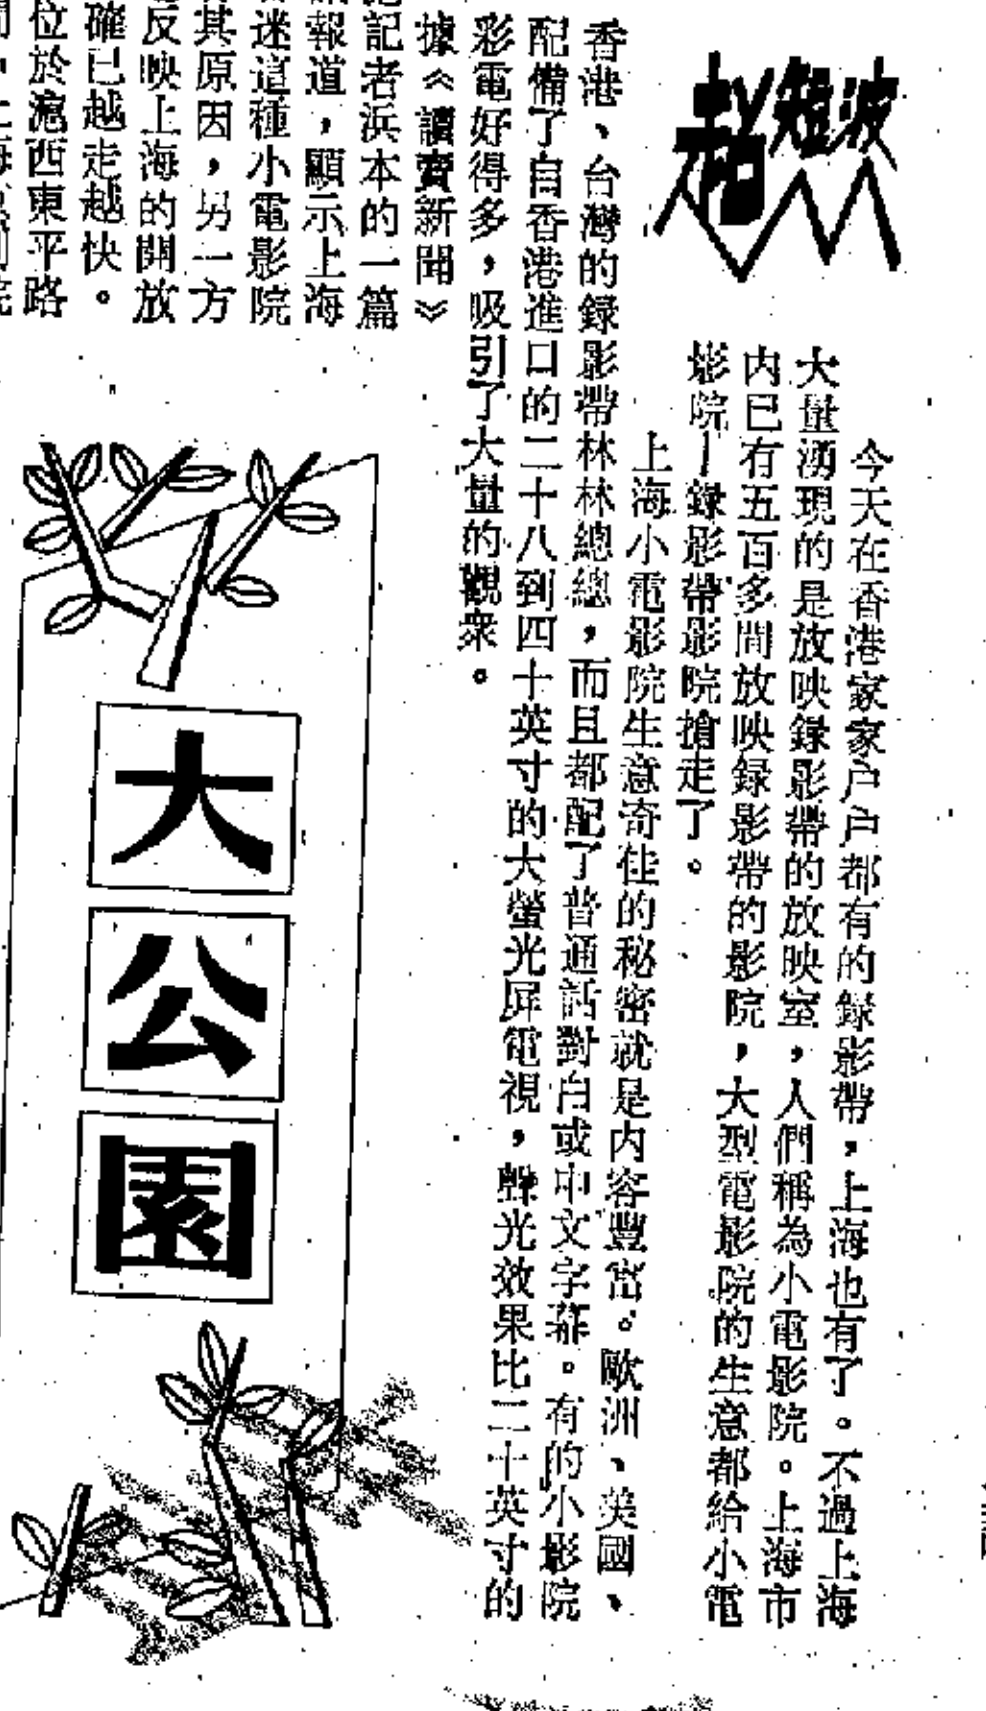 超短波
今天在香港家家户户都有的錄影帶，上海也有了。不過上海
大量湧現的是放映錄影帶的放映室，人們稱為小電影院。上海市
内已有五百多間放映録影帶的影院，大型電影院的生意都給小電
影院—錄影帶影院搶走了。
上海小電影院生意奇佳的秘密就是内容豐富。歐洲、美國、
香港、台灣的録影帶林林總總，而且都配了普通話對白或中文字幕。有的小影院
配備了自香港進口的二十八到四十英寸的大螢光屏電視，聲光效果比二十英寸的
彩電好得多，吸引了大量的觀衆。
據《讀賣新聞》
記者浜本的一篇
報道，顯示上海
迷這種小電影院
其原因，另一方
反映上海的開放
確已越走越快。
位於滬西東平路
大公園